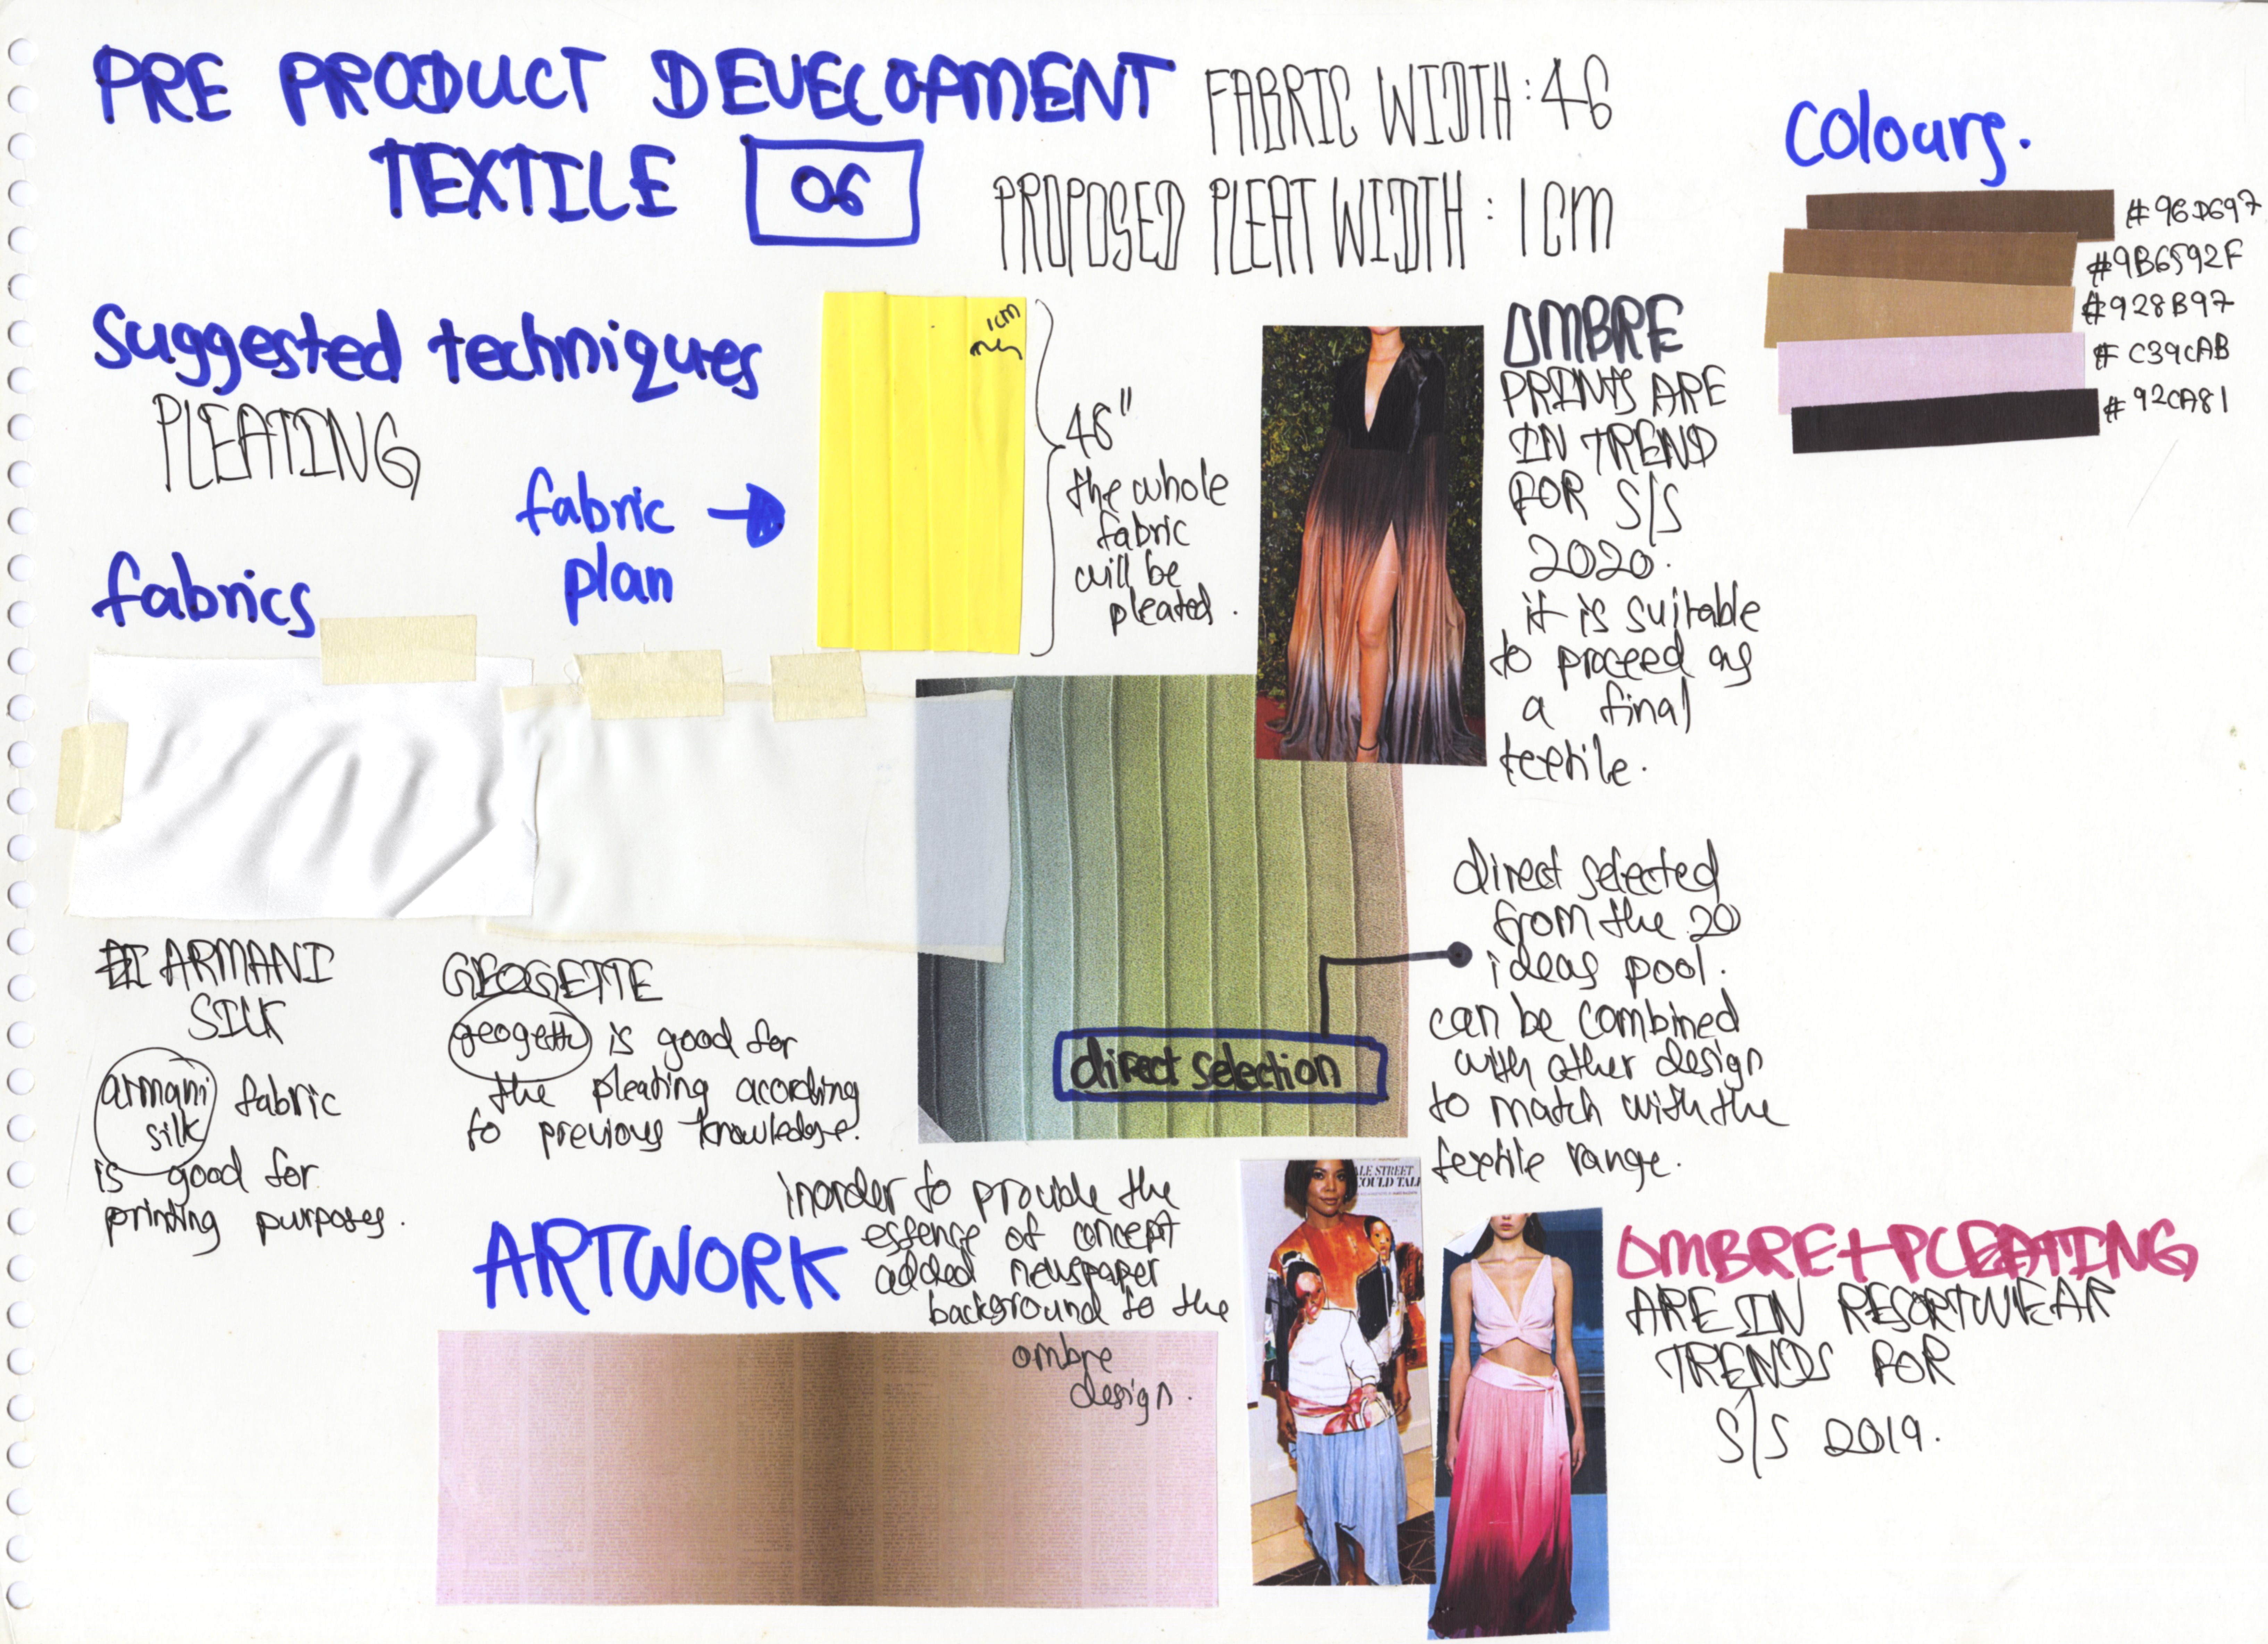 PRE PRODUCT DEVELOPMENT
TEXTILE 06
FABRIC WIDTH : 46
PROPOSED PLEAT WIDTH : 1cm
Colours.
#96D697
#9B6592F
#928B97
# C39CAB
# 92CA81
Suggested techniques
PLEATING
fabric
plan
1cm
46"
the whole
fabric
will be
pleated.
OMBRE
PRINTS ARE
IN TREND
FOR S/S
2020.
it is suitable
to proceed as
a final
textile.
fabrics
ARMANI
SILK
armani
silk fabric
is good for
printing purposes.
GEOGETTE
geogette is good for
the pleating acording
to previous knowledge.
direct selection
direct selected
from the 20
ideas pool.
can be combined
with other design
to match with the
textile range.
ARTWORK
inorder to provide the
essence of concept
added newspaper
background to the
ombre
design.
ALE STREET
COULD TALK
OMBRE+PLEATING
ARE IN RESORTWEAR
TRENDS FOR
S/S 2019.